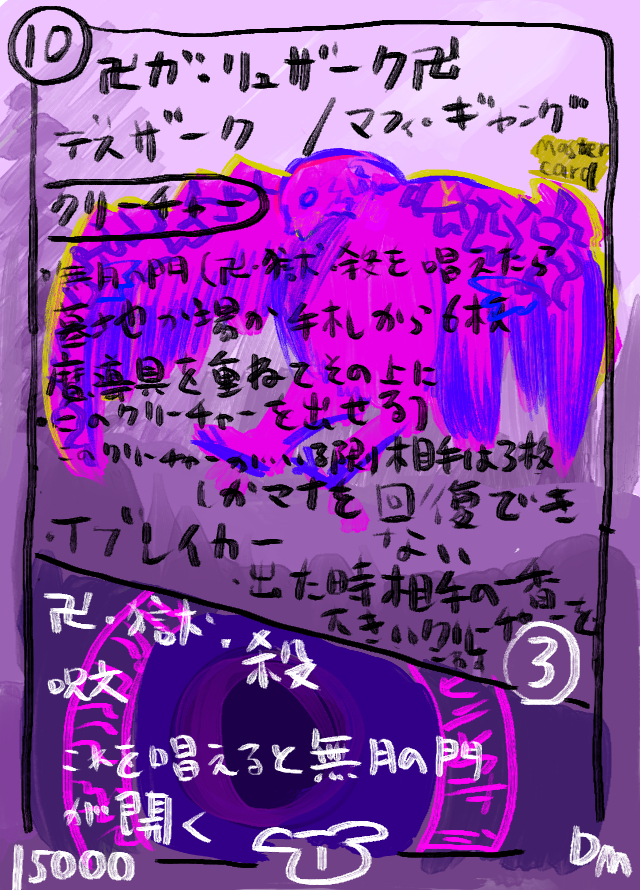 10
卍ガ・リュザーク卍
デスザーク/マフィ・ギャング
master card
クリーチャー
・無月の門(卍・獄・殺を唱えたら
墓地か場か手札から6枚
魔導具を重ねてその上に
・このクリーチャーを出せる)
このクリーチャーがいる限り相手は3枚
しかマナを回復でき
ない
・Tブレイカー
・出た時相手の一番
大きいクリーチャーを
3
卍・獄・殺
呪文
これを唱えると無月の門
が開く
15000
1
DM